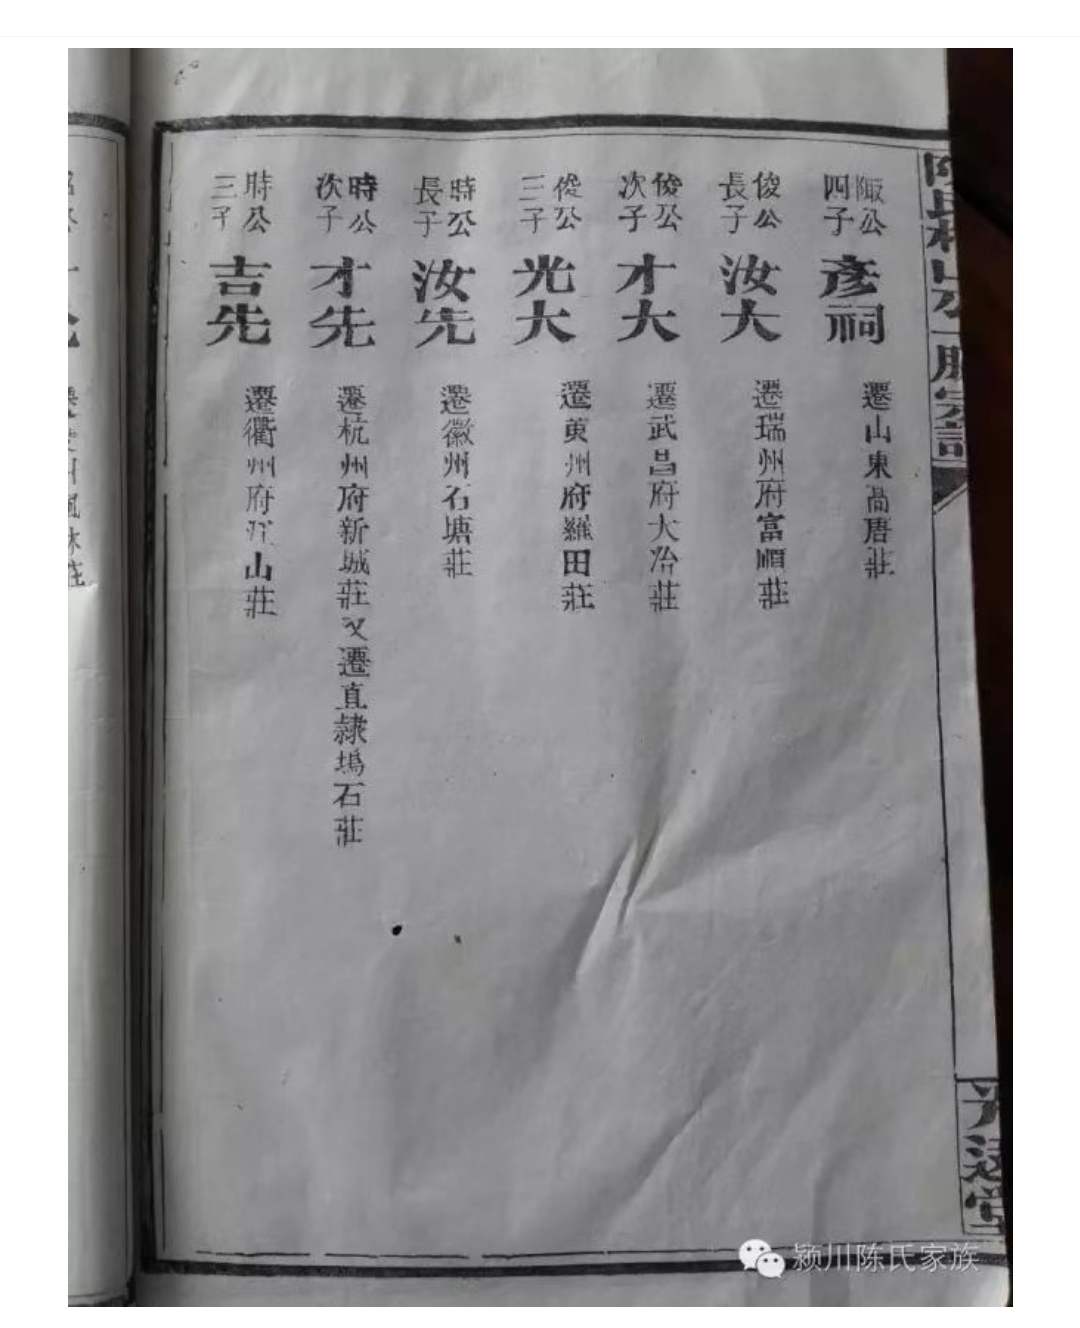 陬公四子 彥祠 遷山東高唐莊
俊公長子 汝大 遷瑞州府富順莊
俊公次子 才大 遷武昌府大冶莊
俊公三子 光大 遷黄州府羅田莊
時公長子 汝先 遷徽州石塘莊
時公次子 才先 遷杭州府新城莊又遷直隸塢石莊
時公三子 吉先 遷衢州府 山莊
颍川陈氏家族